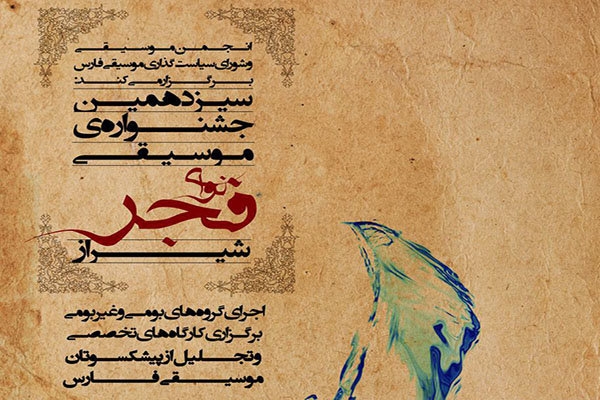 انجمن موسیقی
و شورای سیاست گذاری موسیقی فارس
برگزار می کند:
سیزدهمین
جشنواره‌ی
موسیقی
نوای
فجر
شیراز
اجرای گروه های بومی و غیر بومی
برگزاری کارگاه های تخصصی
و تجلیل از پیشکسوتان
موسیقی فارس